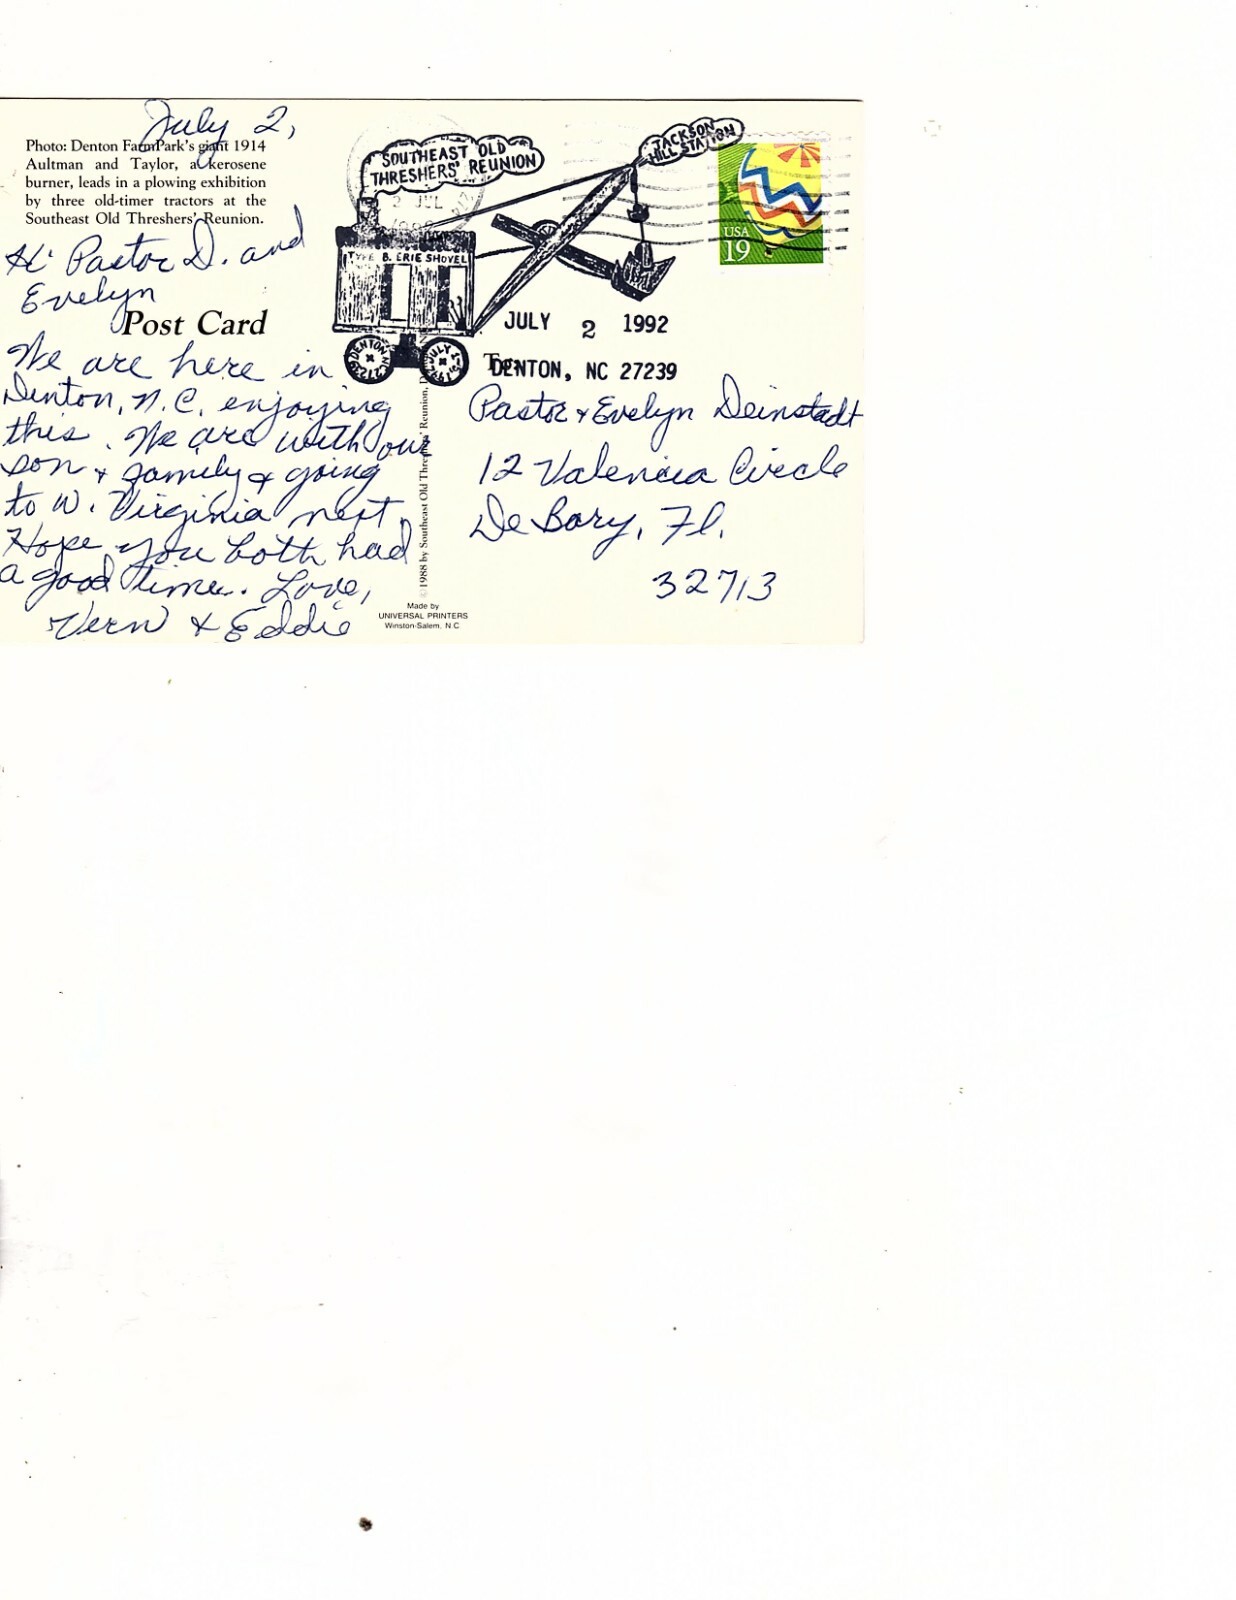 July 2,
Photo: Denton FarmPark's giant 1914
Aultman and Taylor, a kerosene
burner, leads in a plowing exhibition
by three old-timer tractors at the
Southeast Old Threshers' Reunion.
Hi Pastor D. and
Evelyn
Post Card
We are here in
Denton, N.C. enjoying
this. We are with our
son & family & going
to W. Virginia next.
Hope you both had
a good time. Love,
Vern & Eddie
SOUTHEAST OLD
THRESHERS' REUNION
JACKSON
HILL STATION
2 JUL
TYPE B. ERIE SHOVEL
DENTON
27239
JULY
USA
19
JULY 2 1992
DENTON, NC 27239
To:
Pastor & Evelyn Deinstadt
12 Valencia Circle
DeBary, Fl.
32713
©1988 by Southeast Old Threshers' Reunion,
Made by
UNIVERSAL PRINTERS
Winston-Salem, N.C.